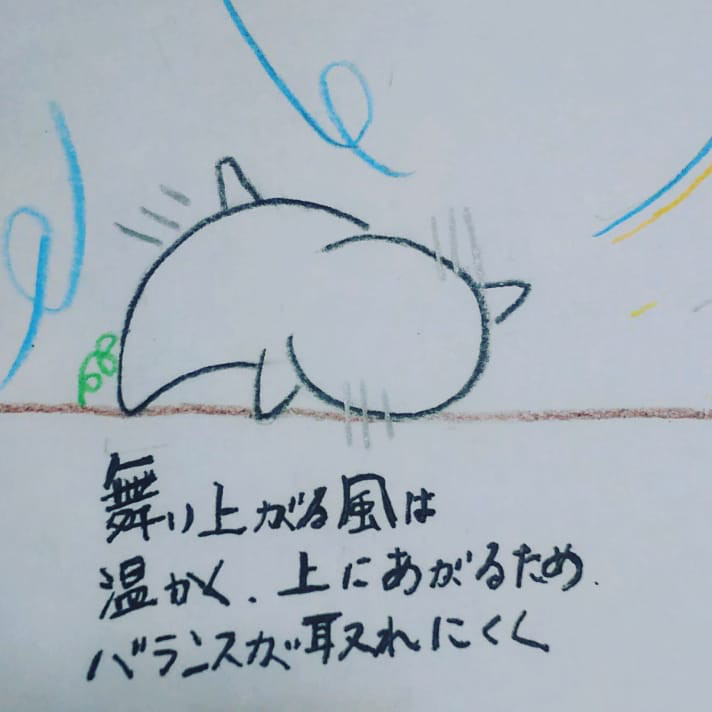 舞り上がる風は
温かく、上にあがるため、
バランスが取れにくく